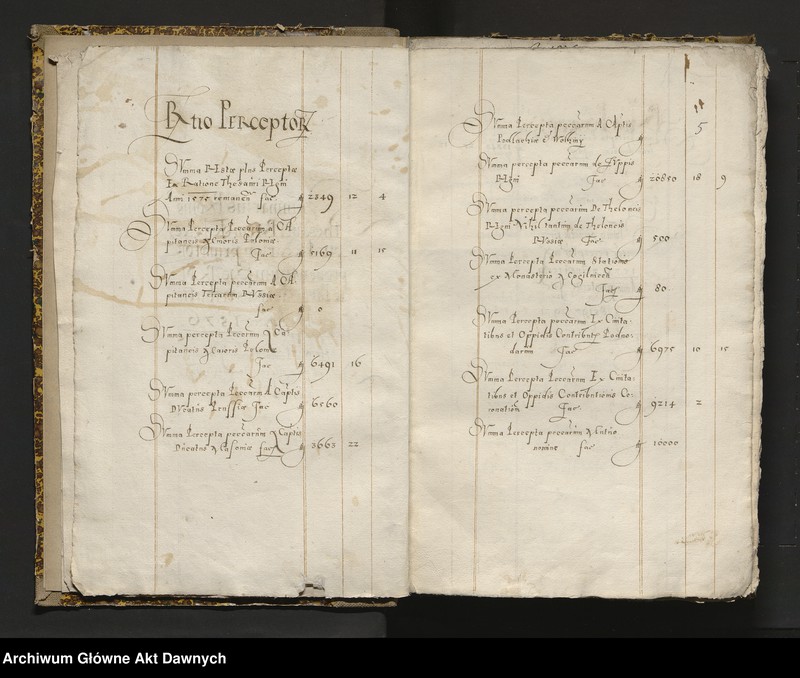 Ratio Perceptor
Summa Restae plus Perceptae
Ex Ratione Thesauri Regni
Anni 1575 remanen fac fl 2849 12 4
Summa Perceptae Pecuniarum a Ca
pitaneis Minoris Poloniae
fac fl 5169 11 15
Summa Percepta pecuniarum A Ca
pitaneis Terrarum Russiae
fac fl 0
Summa percepta Pecuniarum A Ca
pitaneis Maioris Polonie
fac fl 6491 16
Summa percepta Pecuniarum A Captis
Ducatus Prussiae fac fl 6060
Summa Percepta pecuniarum A Captis
Ducatus Masoviae fac fl 3663 22
5
Summa Percepta pecuniarum A Captis
Podlachiae et Wolhiniae fl
Summa percepta pecuniarum de Zuppis
Regni fac fl 20850 18 9
Summa percepta pecuniarum De Theloneis
Regni Nihil tantum de Theloneio
Russiae fac fl 500
Summa Percepta Pecuniarum Stationis
ex Monasterio
fac fl 80
Summa Percepta pecuniarum Ex Civita
tibus et Oppidis Contributionis Podwo
darum fac fl 6975 10 15
Summa Percepta Pecuniarum Ex Civita
tibus et Oppidis Contributionis Co
ronationis fac fl 9214 2
Summa Percepta pecuniarum Mutuo
nomine fac fl 10000
Archiwum Główne Akt Dawnych